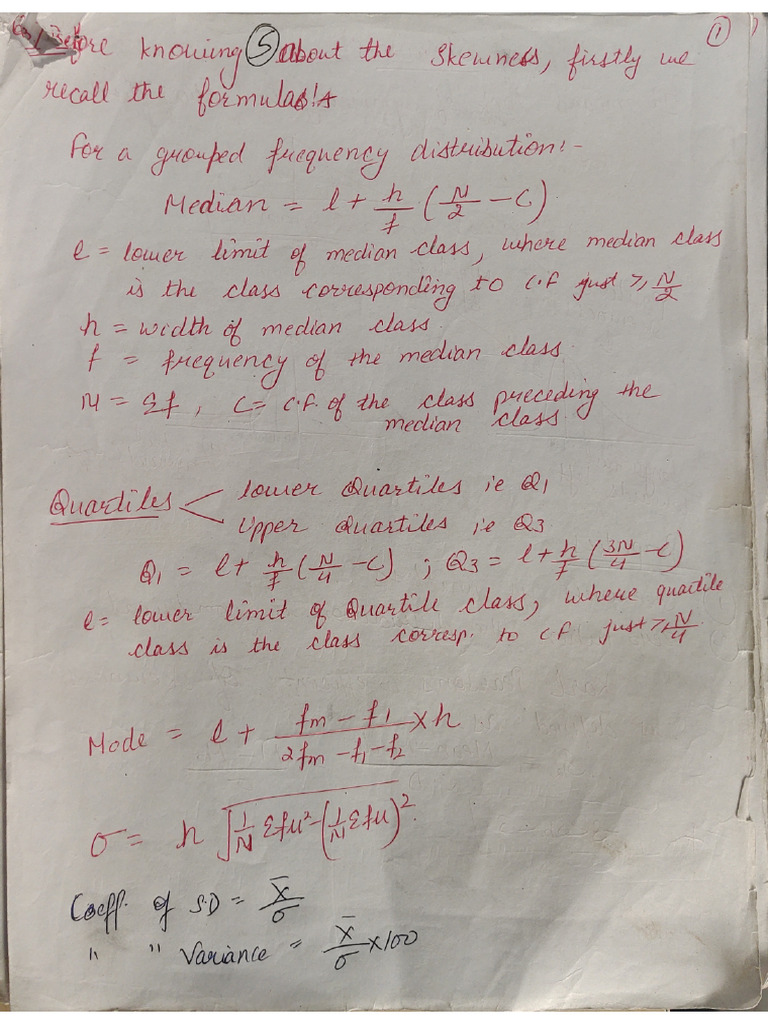 ①
Before knowing ⑤ about the skewness, firstly we
recall the formulas:-
For a grouped frequency distribution:-
Median = l + h/f (N/2 - C)
l = lower limit of median class, where median class
is the class corresponding to c.f just ≥ N/2
h = width of median class.
f = frequency of the median class.
N = Σf, C = c.f. of the class preceding the
median class
Quartiles < lower Quartiles ie Q1
Upper Quartiles ie Q3
Q1 = l + h/f (N/4 - C) ; Q3 = l + h/f (3N/4 - C)
l = lower limit of Quartile class, where quartile
class is the class corresp. to cf just ≥ N/4
Mode = l + (fm - f1)/(2fm - f1 - f2) × h
σ = h √(1/N Σfu² - (1/N Σfu)²)
Coeff. of S.D = x̄/σ
" " Variance = x̄/σ × 100